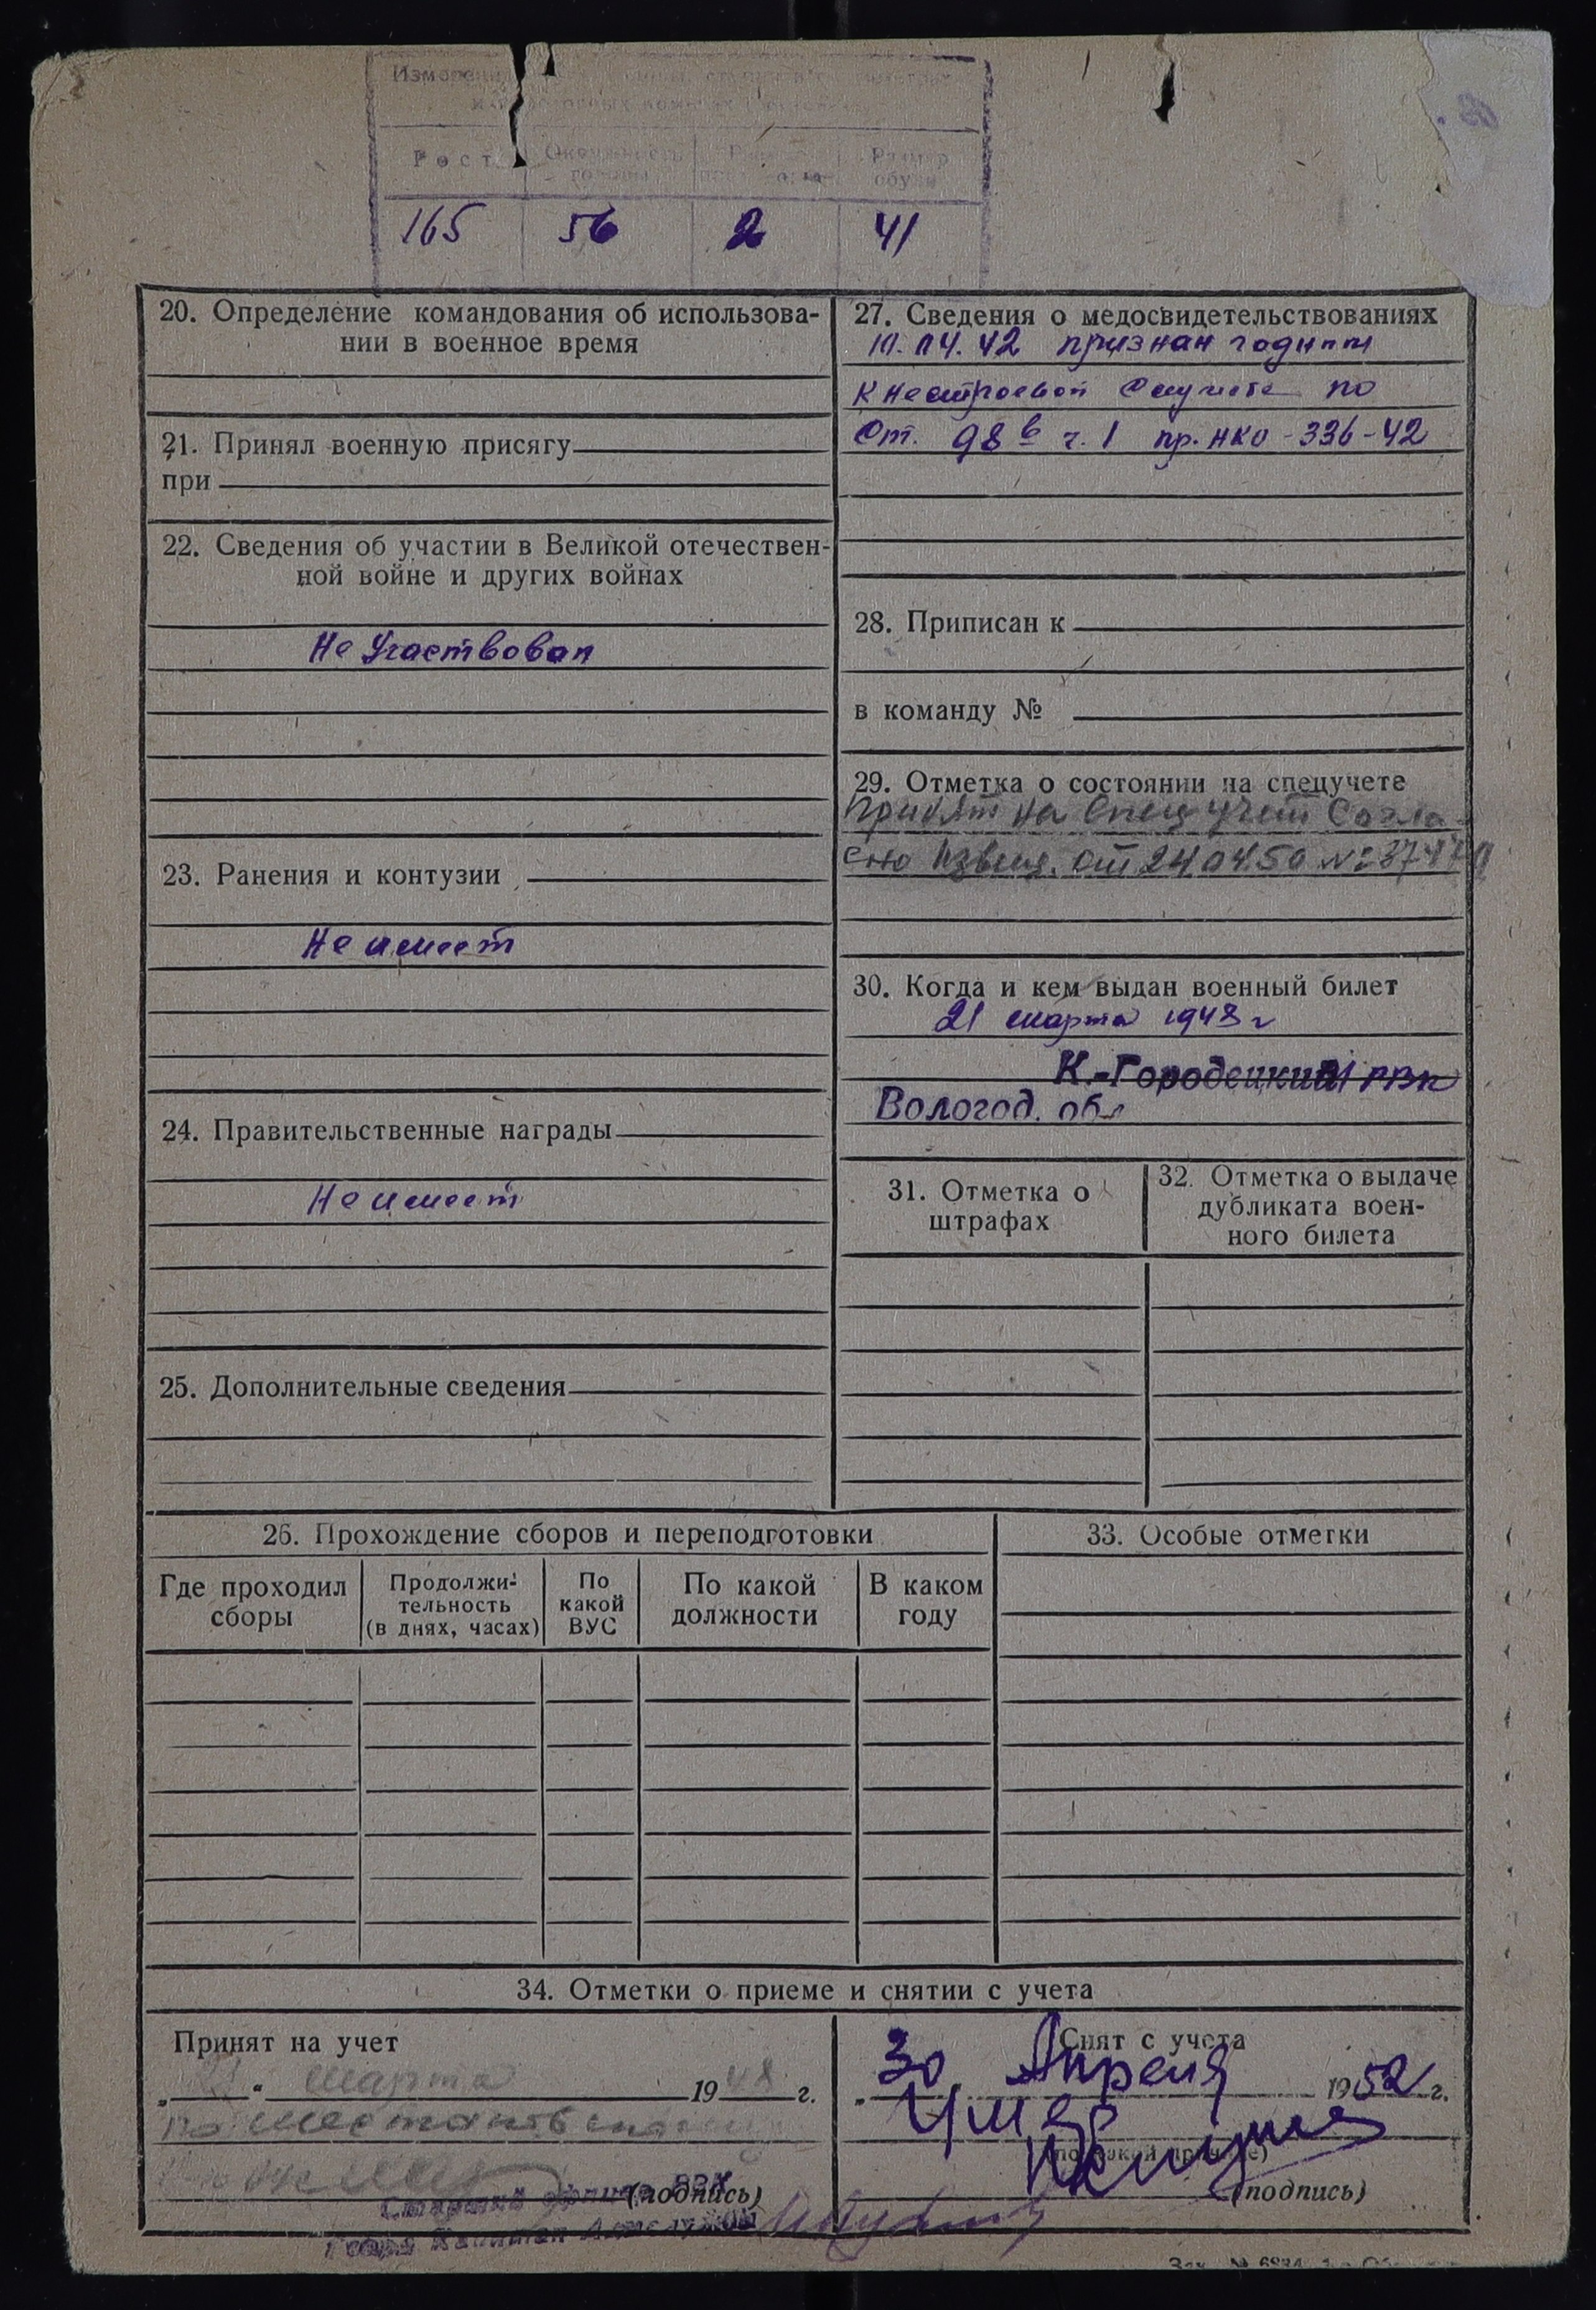 Рост
Окружность
головы
Размер
обуви
165 56 2 41
20. Определение командования об использова-
нии в военное время
21. Принял военную присягу
при
22. Сведения об участии в Великой отечествен-
ной войне и других войнах
Не Участвовал
23. Ранения и контузии
Не имеет
24. Правительственные награды
Не имеет
25. Дополнительные сведения
27. Сведения о медосвидетельствованиях
признан годным
к нестроевой службе по
Ст. 98 в ч. 1 пр. НКО-336-42
28. Приписан к
в команду №
29. Отметка о состоянии на спецучете
Принят на Спец учет Согла-
сно Извещ. от 24.04.50
30. Когда и кем выдан военный билет
21 марта 1948 г
К.-Городецкий РВК
Вологод. обл
31. Отметка о
штрафах
32. Отметка о выдаче
дубликата воен-
ного билета
26. Прохождение сборов и переподготовки
Где проходил
сборы
Продолжи-
тельность
(в днях, часах)
По
какой
ВУС
По какой
должности
В каком
году
33. Особые отметки
34. Отметки о приеме и снятии с учета
Принят на учет
„ “ марта 1948 г.
(подпись)
Снят с учета
„30 Апреля 1952 г.
Умер
(подпись)